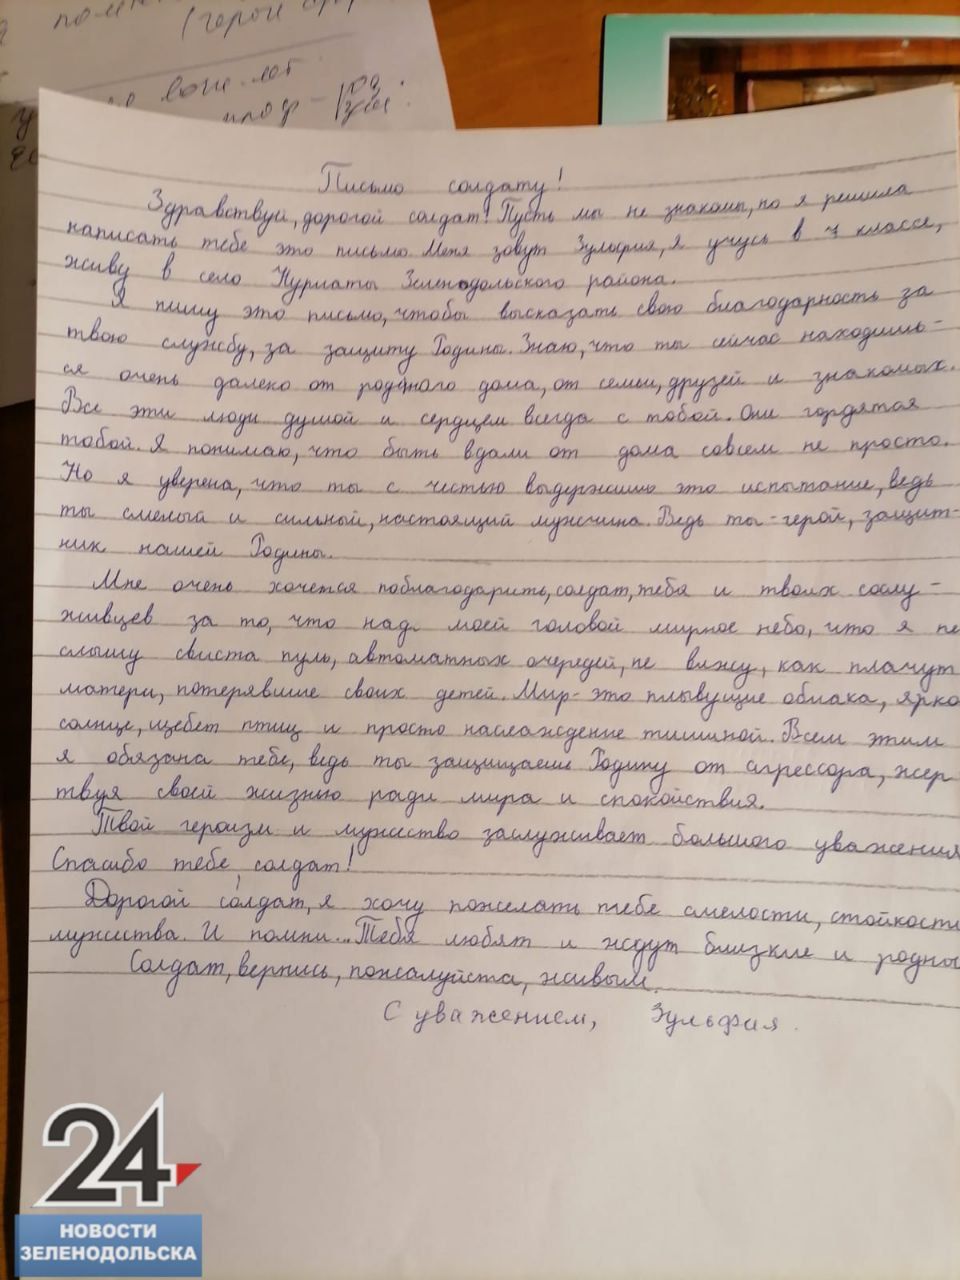 Письмо солдату!
Здравствуй, дорогой солдат! Пусть мы не знакомы, но я решила
написать тебе это письмо. Меня зовут Зульфия, я учусь в 7 классе,
живу в село Нурлаты Зеленодольского района.
Я пишу это письмо, чтобы высказать свою благодарность за
твою службу, за защиту Родины. Знаю, что ты сейчас находишь-
ся очень далеко от родного дома, от семьи, друзей и знакомых.
Все эти люди думой и сердцем всегда с тобой. Они гордятся
тобой. Я понимаю, что быть вдали от дома совсем не просто.
Но я уверена, что ты с честью выдержишь это испытание, ведь
ты смелый и сильный, настоящий мужчина. Ведь ты - герой, защит-
ник нашей Родины.
Мне очень хочется поблагодарить, солдат, тебя и твоих сослу-
живцев за то, что над моей головой мирное небо, что я не
слышу свиста пуль, автоматных очередей, не вижу, как плачут
матери, потерявшие своих детей. Мир - это плывущие облака, ярко
солнце, щебет птиц и просто наслаждение тишиной. Всем этим
я обязана тебе, ведь ты защищаешь Родину от агрессора, жер
твуя своей жизнью ради мира и спокойствия.
Твой героизм и мужество заслуживает большого уважения
Спасибо тебе, солдат!
Дорогой солдат, я хочу пожелать тебе смелости, стойкости
мужества. И помни... Тебя любят и ждут близкие и родны
Солдат, вернись, пожалуйста, живым.
С уважением, Зульфия.
24
НОВОСТИ
ЗЕЛЕНОДОЛЬСКА